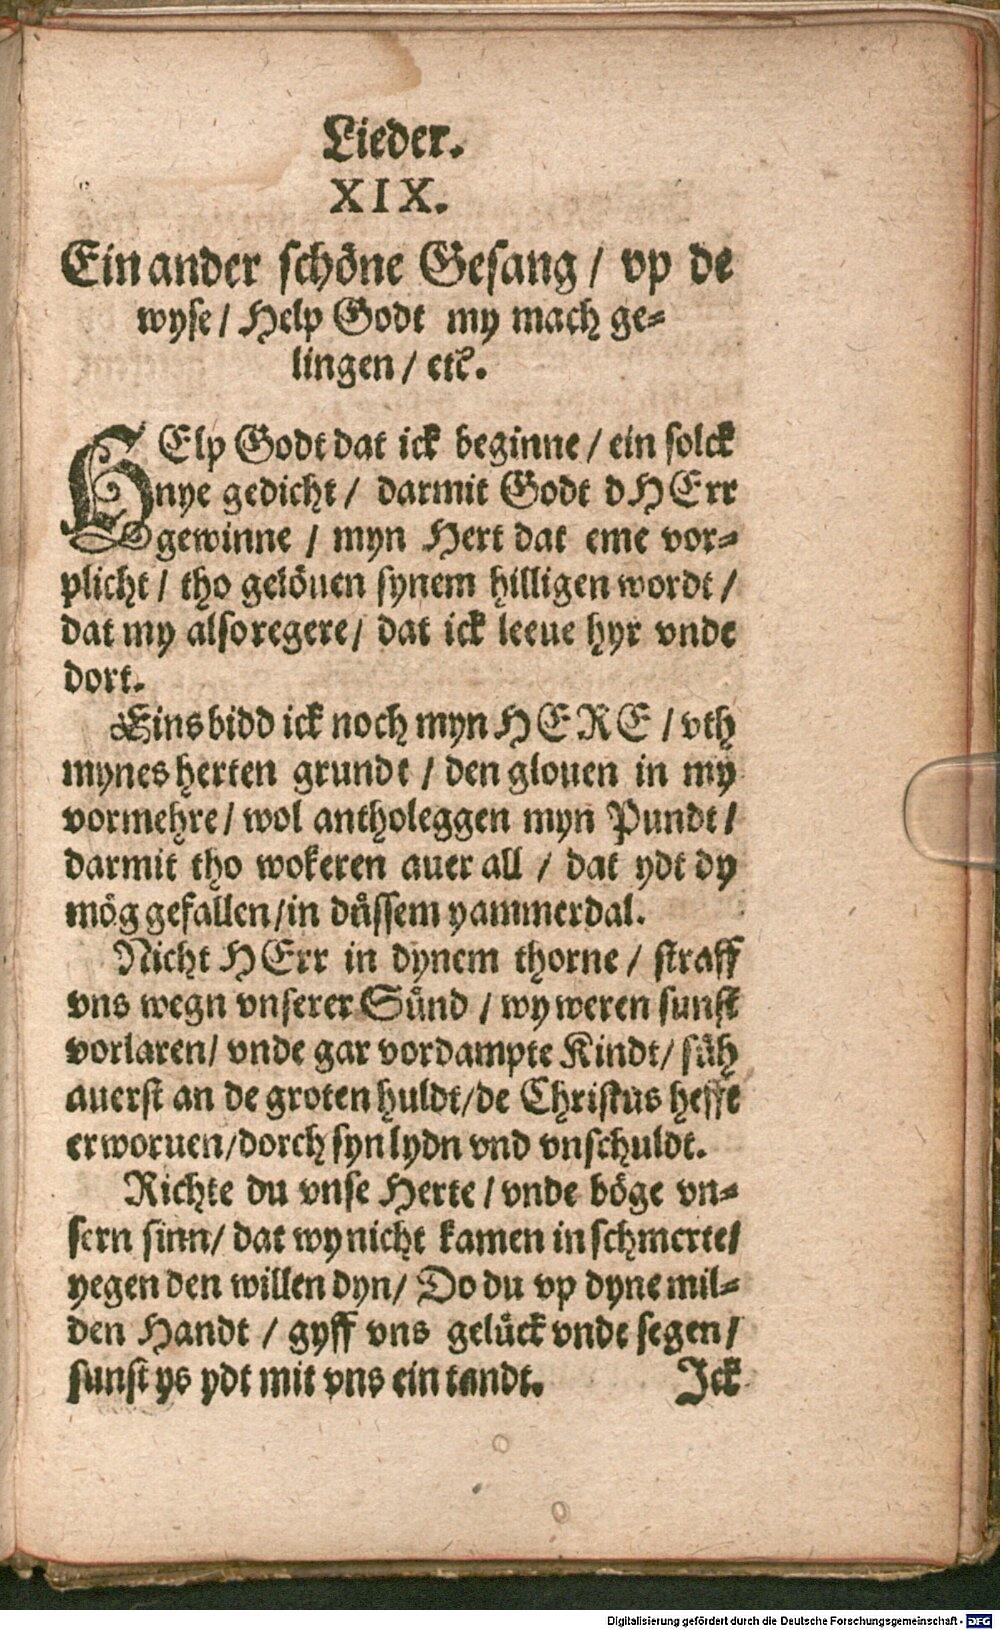 Lieder.
XIX.
Ein ander schöne Gesang / vp de
wyse / Help Godt my mach ge-
lingen / etc.
HElp Godt dat ick beginne / ein solck
nye gedicht / darmit Godt d HErr
gewinne / myn Hert dat eme vor-
plicht / tho gelöuen synem hilligen wordt /
dat my also regere / dat ick leeue hyr vnde
dort.
Eins bidd ick noch myn HERE / vth
mynes herten grundt / den glouen in my
vormehre / wol antholeggen myn Pundt /
darmit tho wokeren auer all / dat ydt dy
mög gefallen / in düssem yammerdal.
Nicht HErr in dynem thorne / straff
vns wegn vnserer Sünd / wy weren sunst
vorlaren / vnde gar vordampte Kindt / süh
auerst an de groten huldt / de Christus hefft
erworuen / dorch syn lydn vnd vnschuldt.
Richte du vnse Herte / vnde böge vn-
sern sinn / dat wy nicht kamen in schmerte /
yegen den willen dyn / Do du vp dyne mil-
den Handt / gyff vns gelück vnde segen /
sunst ys ydt mit vns ein tandt. Ick
Digitalisierung gefördert durch die Deutsche Forschungsgemeinschaft - DFG